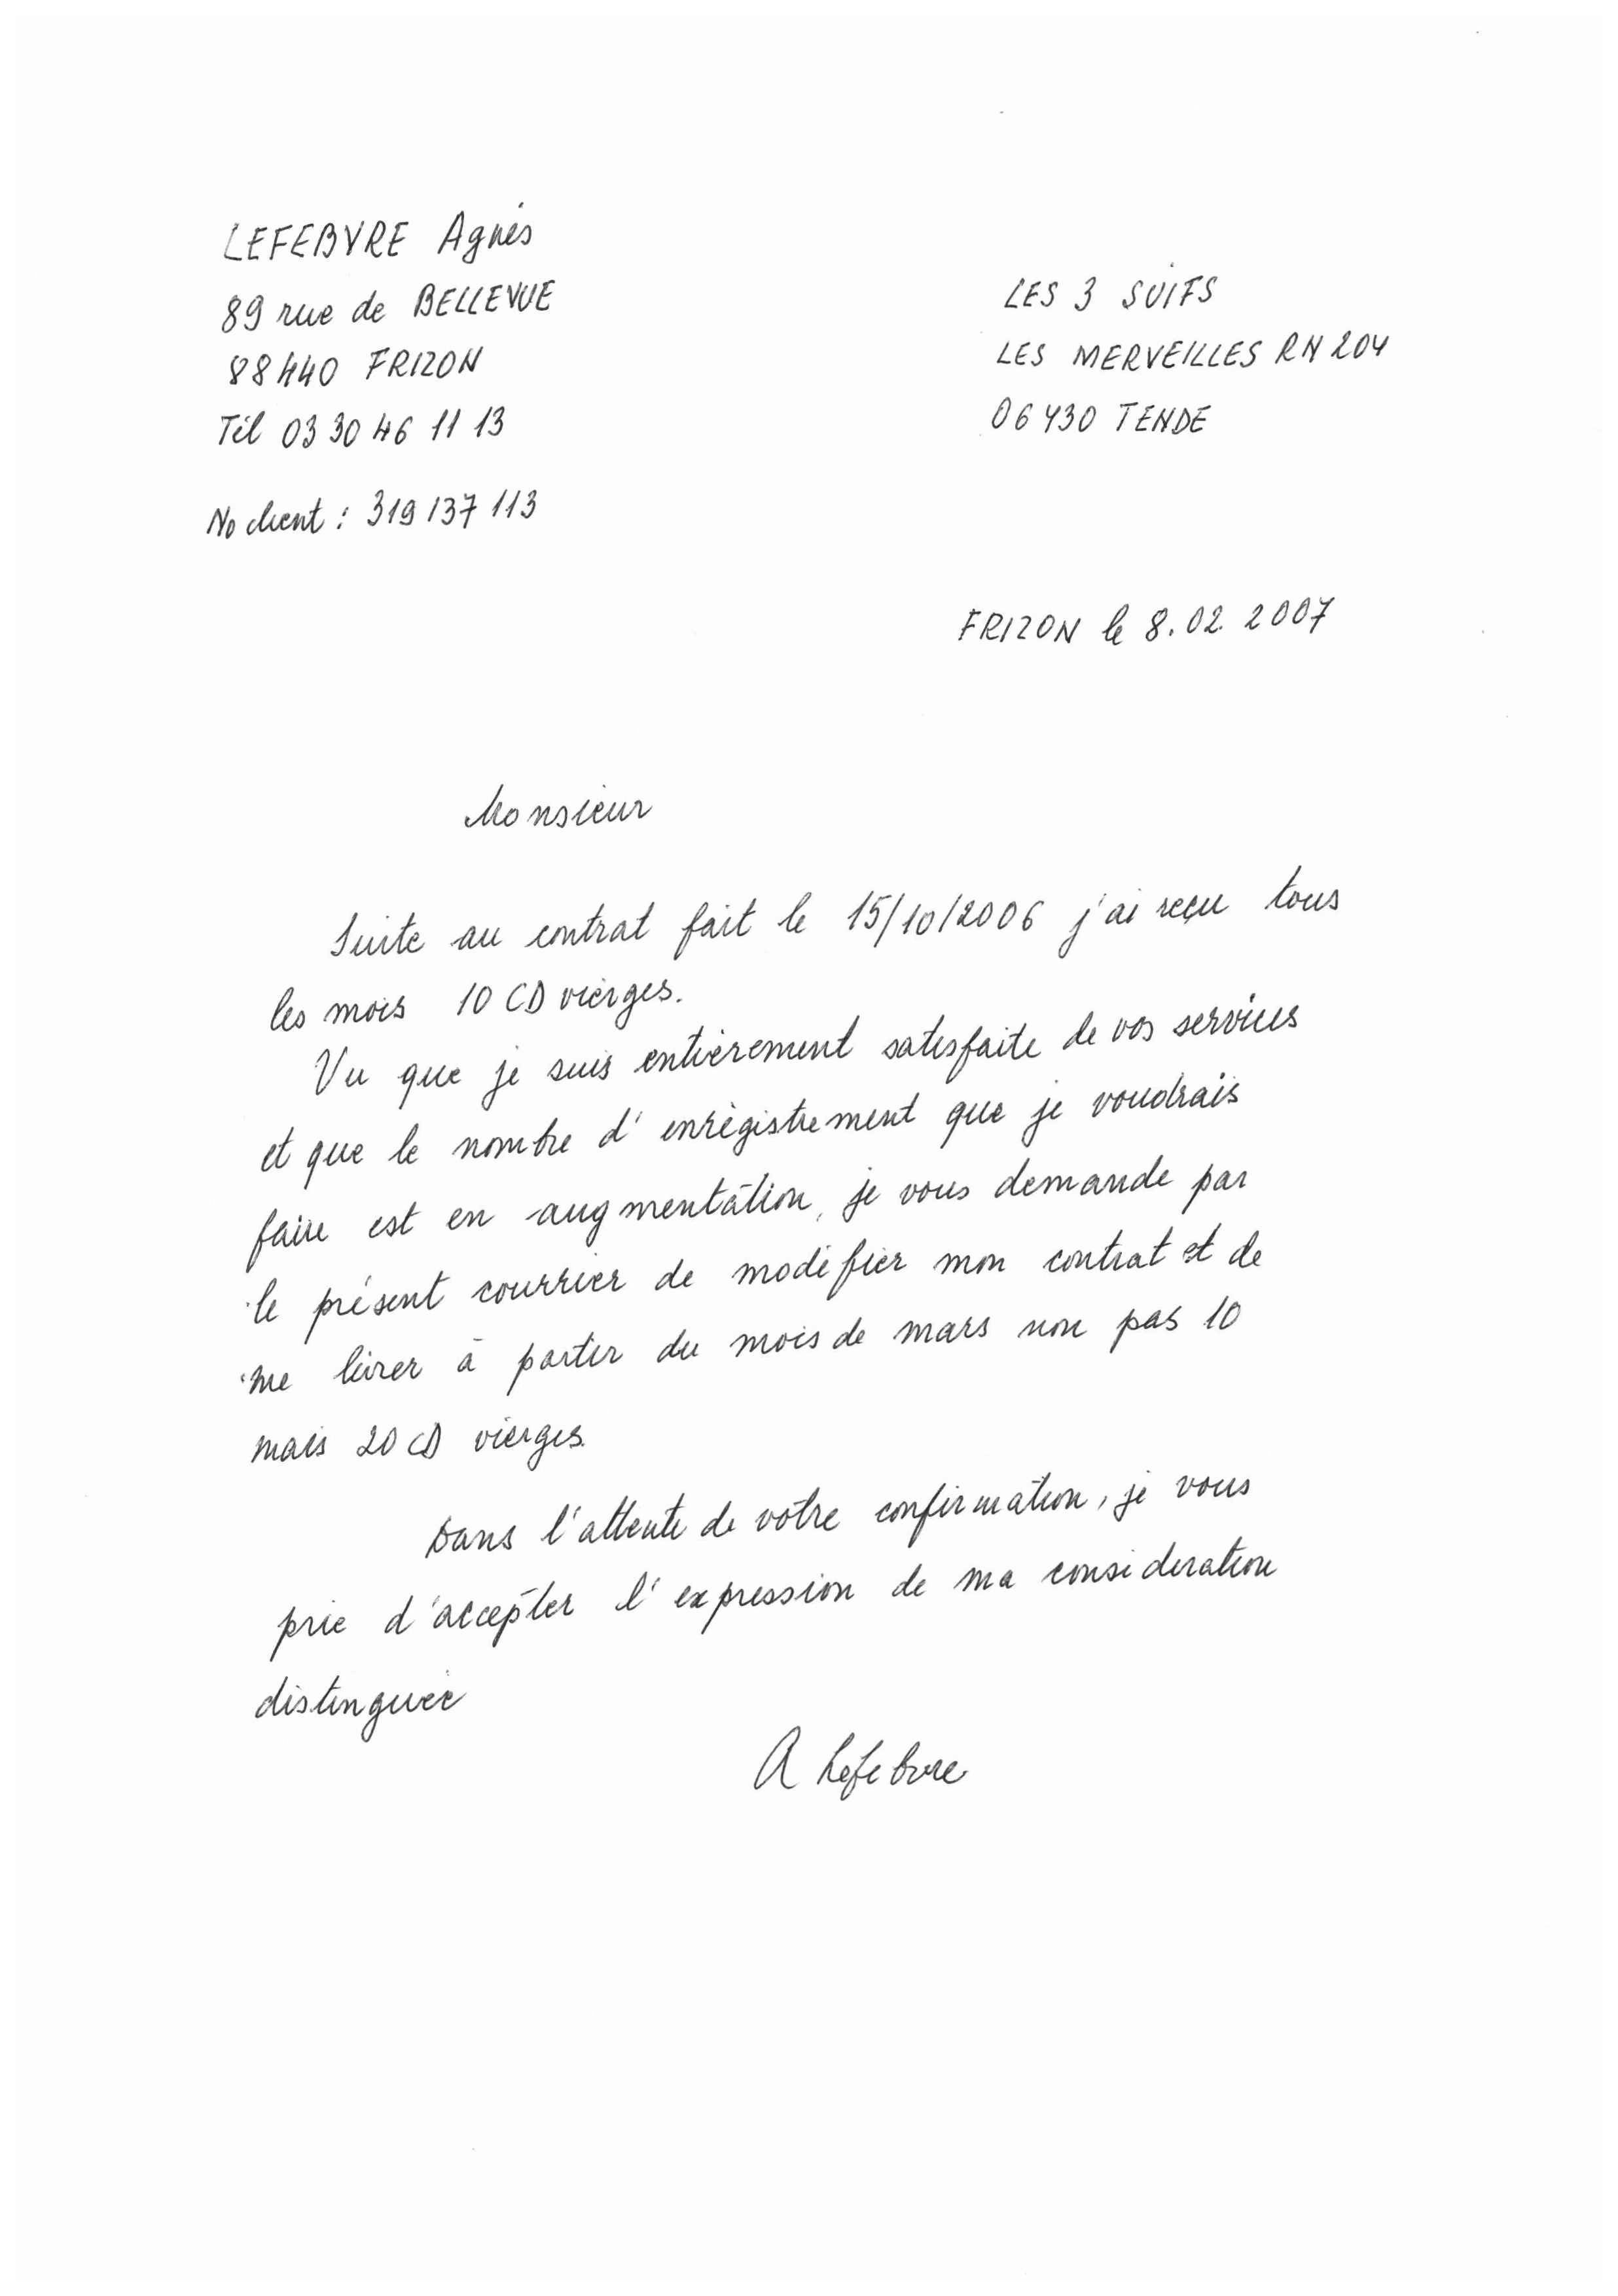 LEFEBVRE Agnès
89 rue de BELLEVUE
88440 FRIZON
Tél 03 30 46 11 13
No client : 319 137 113
LES 3 SUIFS
LES MERVEILLES RN 204
06430 TENDE
FRIZON le 8.02.2007
Monsieur
Suite au contrat fait le 15/10/2006 j'ai reçu tous
les mois 10 CD vierges.
Vu que je suis entièrement satisfaite de vos services
et que le nombre d'enrégistrement que je voudrais
faire est en augmentation, je vous demande par
le présent courrier de modifier mon contrat et de
me livrer à partir du mois de mars non pas 10
mais 20 CD vierges.
Dans l'attente de votre confirmation, je vous
prie d'accepter l'expression de ma consideration
distinguée
A Lefebvre